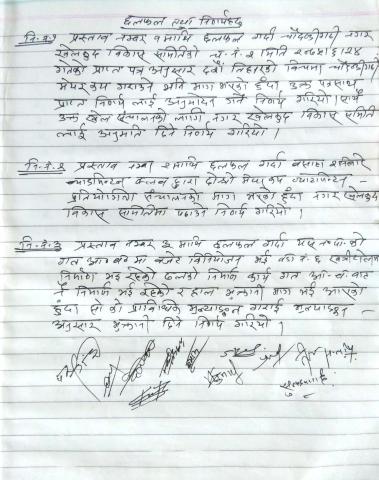 छलफल तथा निर्णयहरु
नि.नं.१ प्रस्ताव नम्बर १ माथि छलफल गर्दा चौदण्डीगढी नगर
खेलकुद विकास समितिको च.नं. २ मिति २०७५/६/२४
गतेको प्राप्त पत्र अनुसार दशैं तिहारको विषयमा चौदण्डीगढी
मेयर कप गराउने भनि माग भएको हुँदा उक्त पत्रसाथ
प्राप्त निर्णय लाई अनुमोदन गर्ने निर्णय गरियो । साथै
उक्त खेल संचालनको लागि नगर खेलकुद विकास समिति
लाई अनुमति दिने निर्णय गरियो ।
नि.नं.२ प्रस्ताव नम्बर २ माथि छलफल गर्दा बसाहा
ब्याडमिन्टन क्लब द्वारा दोस्रो मेयर कप ब्याडमिन्टन
प्रतियोगिता संचालनको माग भएको हुँदा नगर खेलकुद
विकास समितिमा पठाउने निर्णय गरियो ।
नि.नं.३ प्रस्ताव नम्बर ३ माथि छलफल गर्दा यस न.पा.को
गत आ.व. मा बजेट विनियोजन भई वडा नं. ६
निर्माण भई रहेको ढलको निर्माण कार्य गत आ.व. बाट
नै निर्माण भई रहेको र हाल भुक्तानी माग भई आएको
हुँदा सो को प्राविधिक मुल्याङ्कन गराई मुल्याङ्कन
अनुसार भुक्तानी दिने निर्णय गरियो ।